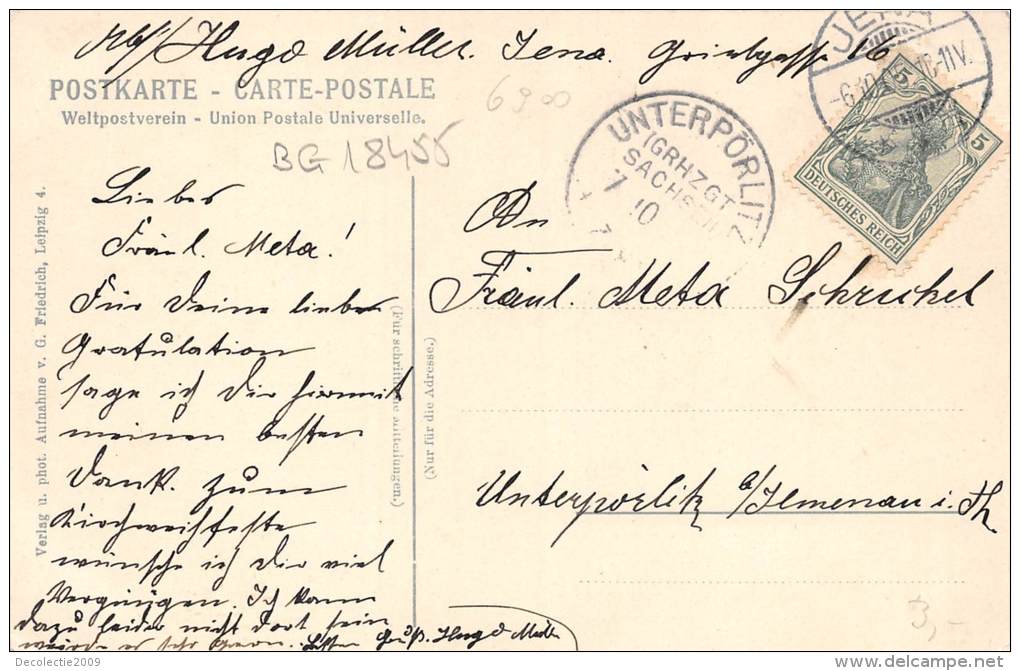 Abs/ Hugo Müller. Jena. 16
POSTKARTE - CARTE-POSTALE
Weltpostverein - Union Postale Universelle.
6900
BG18455
JENA
10-11V.
UNTERPÖRLITZ
(GRHZGT.
SACHSEN)
7 10
5
5
DEUTSCHES REICH
Verlag u. phot. Aufnahme v. G. Friedrich, Leipzig 4.
Liebes
Fräul. Meta!
Für Deine lieben
Gratulation
sage ich Dir hiermit
meinen besten
Dank. Zum
Kirchweihfeste
wünsche ich Dir viel
Vergnügen. Ich kann
dazu leider nicht dort sein
würde es sehr gern. Gruß. Hugo Müller
(Für schriftliche Mitteilungen.)
(Nur für die Adresse.)
An
Fräul. Meta Schrickel
Unterpörlitz b/Ilmenau i. Th.
3,-
Decolectie2009
delcampe.net